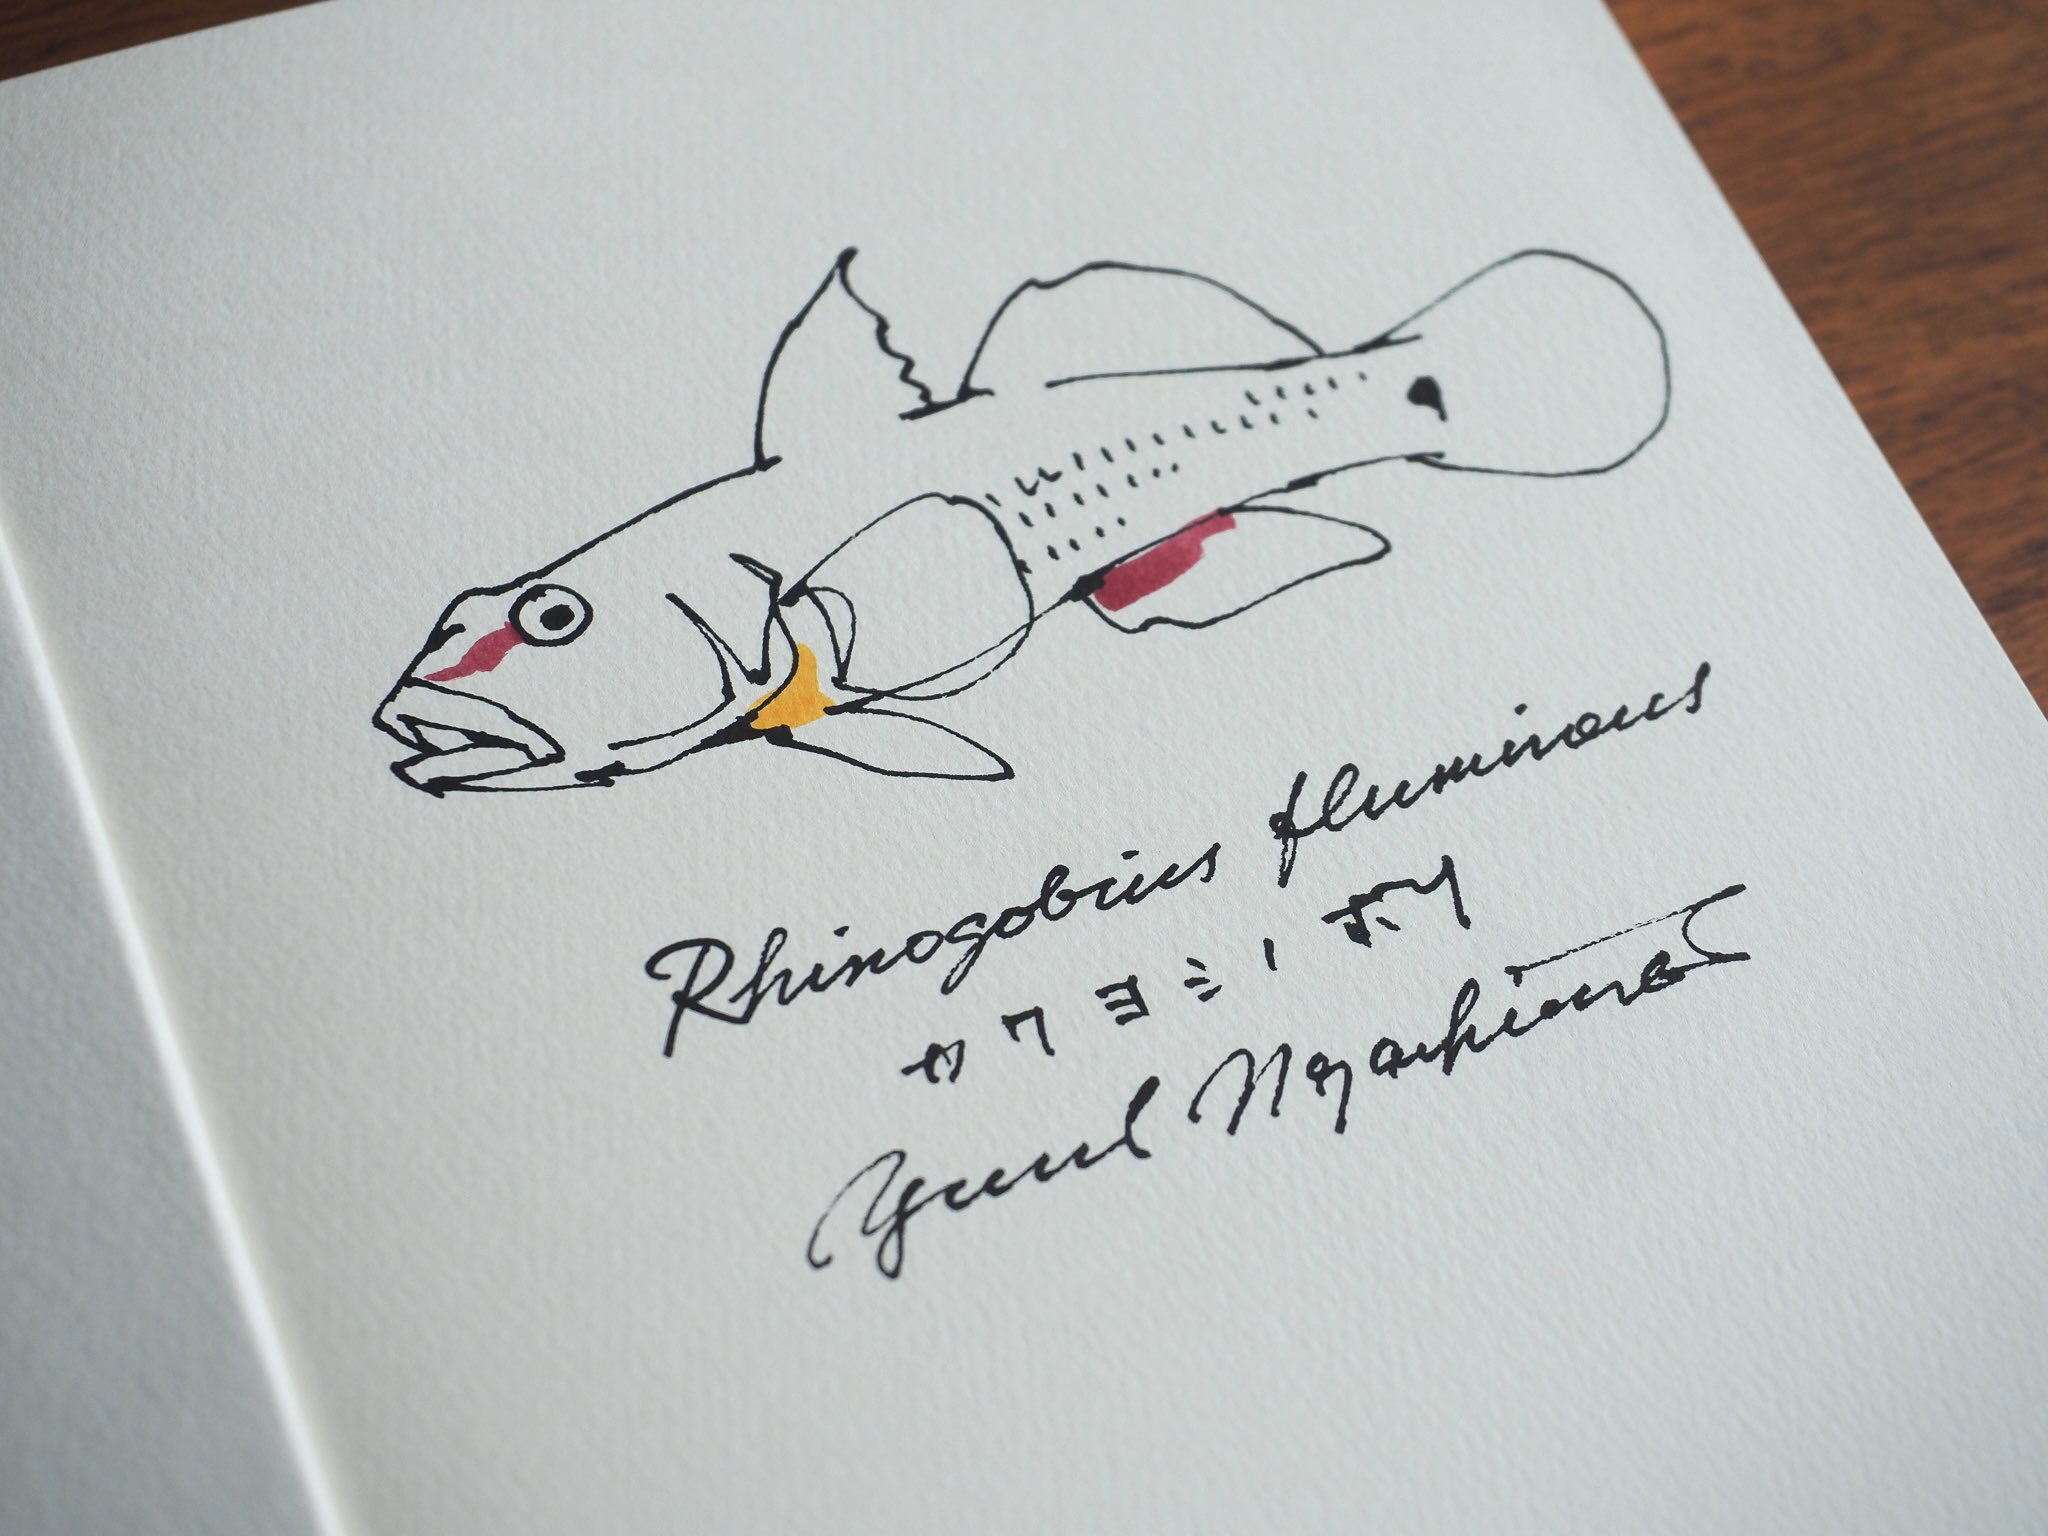 Rhinogobius flumineus
カワヨシノボリ
Yusei Nagashima